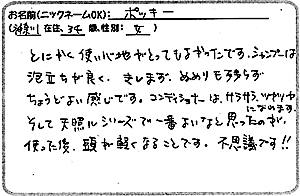 お名前(ニックネームOK): ポッキー
在住, 34 歳, 性別: 女)
とにかく使い心地がとってもよかったです。シャンプーは
泡立ちが良く、きしまず、ぬめりも多からず
ちょうどよい感じです。コンディショナーは、サラサラ、ツヤツヤ
になります
そして天照ルシリーズで一番よいなと思ったのが、
使った後、頭が軽くなることです。不思議です!!